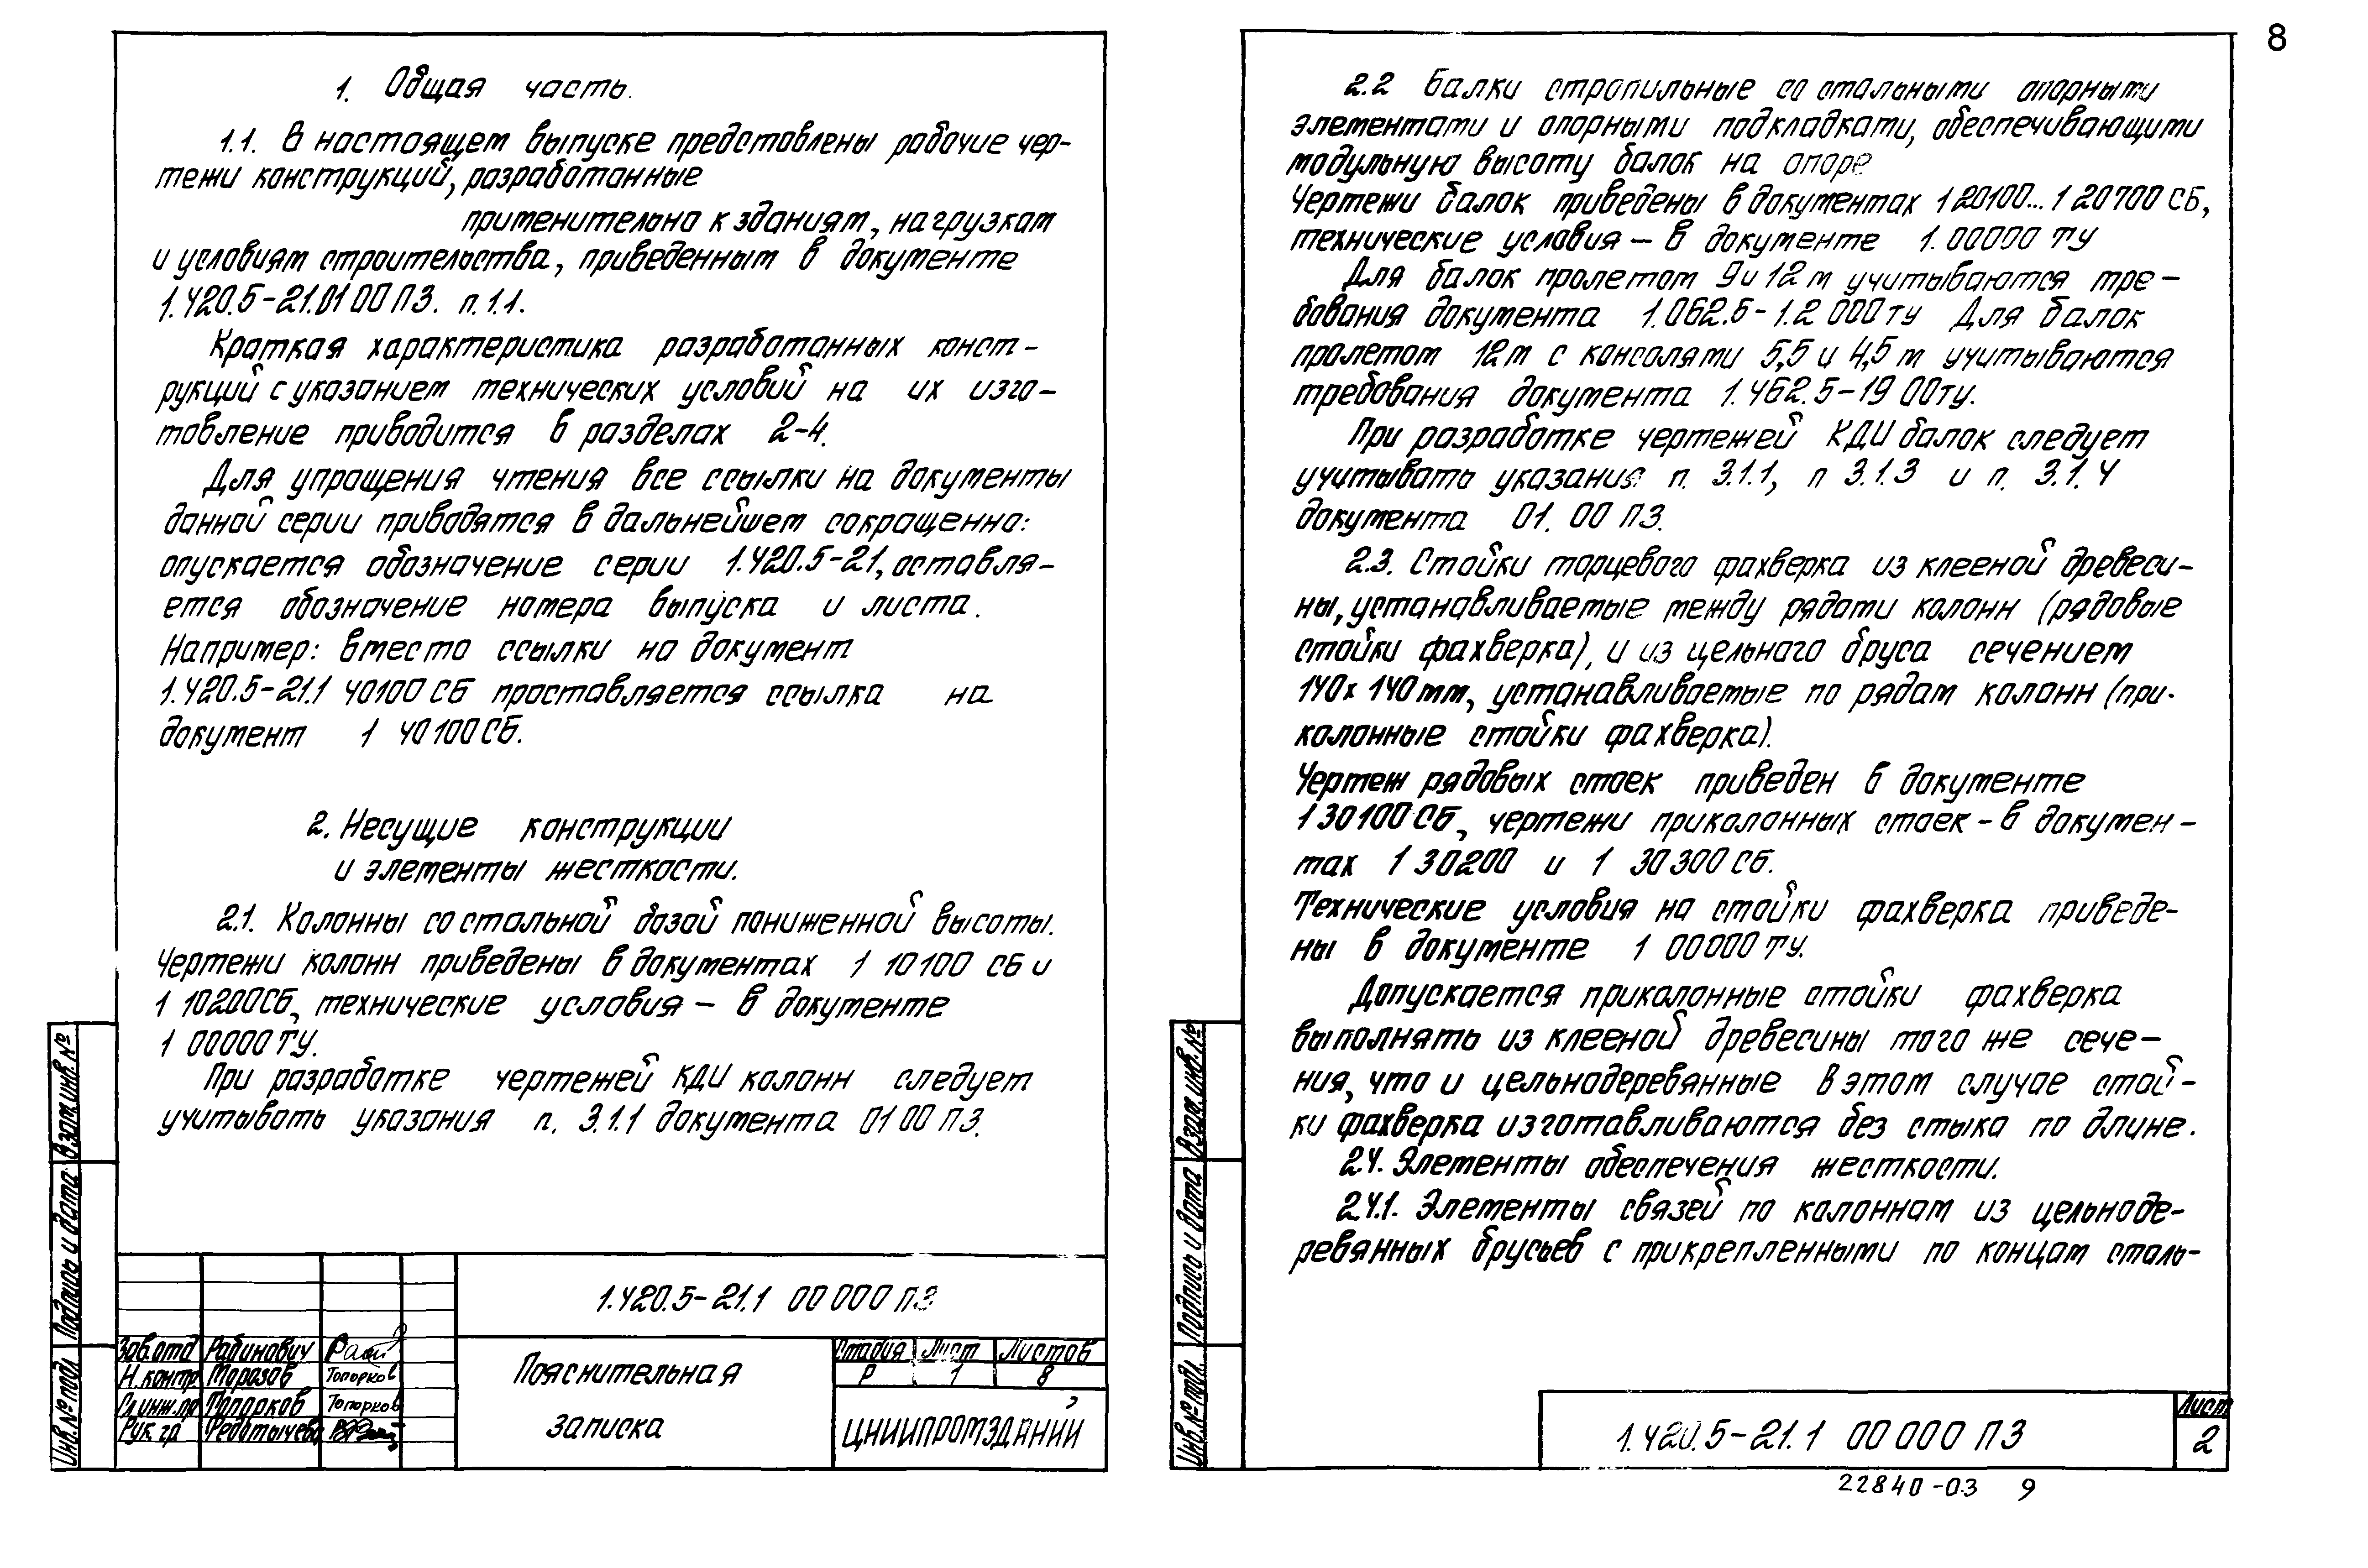 8
1. Общая часть.
1.1. В настоящем выпуске представлены рабочие чер-
тежи конструкций, разработанные
применительно к зданиям, нагрузкам
и условиям строительства, приведенным в документе
1.420.5-21.0100ПЗ. п.1.1.
Краткая характеристика разработанных конст-
рукций с указанием технических условий на их изго-
товление приводится в разделах 2-4.
Для упрощения чтения все ссылки на документы
данной серии приводятся в дальнейшем сокращенно:
опускается обозначение серии 1.420.5-21, оставля-
ется обозначение номера выпуска и листа.
Например: вместо ссылки на документ
1.420.5-21.1 40100СБ проставляется ссылка на
документ 1 40100СБ.
2. Несущие конструкции
и элементы жесткости.
2.1. Колонны со стальной базой пониженной высоты.
Чертежи колонн приведены в документах 1 10100 СБ и
1 10200СБ, технические условия – в документе
1 00000ТУ.
При разработке чертежей КДИ колонн следует
учитывать указания п. 3.1.1 документа 01 00 ПЗ.
1.420.5-21.1 00 000 ПЗ
Зав.отд Рабинович
Н.контр Морозов Топорков
Гл.инж.пр Топорков Топорков
Рук.гр
Пояснительная
записка
Стадия Лист Листов
Р 1 8
ЦНИИПРОМЗДАНИЙ
Взам.инв.№
Подпись и дата
Инв.№ подл
2.2 Балки стропильные со стальными опорными
элементами и опорными подкладками, обеспечивающими
модульную высоту балок на опоре
Чертежи балок приведены в документах 1 20100... 1 20700 СБ,
технические условия – в документе 1. 00000 ТУ
Для балок пролетом 9 и 12 м учитываются тре-
бования документа 1.062.5-1.2 000ТУ Для балок
пролетом 12м с консолями 5,5 и 4,5 м учитываются
требования документа 1.462.5-19 00ТУ.
При разработке чертежей КДИ балок следует
учитывать указания п. 3.1.1, п 3.1.3 и п. 3.1.4
документа 01. 00 ПЗ.
2.3. Стойки торцевого фахверка из клееной древеси-
ны, устанавливаемые между рядами колонн (рядовые
стойки фахверка), и из цельного бруса сечением
140х140мм, устанавливаемые по рядам колонн (при-
колонные стойки фахверка).
Чертеж рядовых стоек приведен в документе
1 30100 СБ, чертежи приколонных стоек – в докумен-
тах 1 30200 и 1 30300 СБ.
Технические условия на стойки фахверка приведе-
ны в документе 1 00000 ТУ.
Допускается приколонные стойки фахверка
выполнять из клееной древесины того же сече-
ния, что и цельнодеревянные В этом случае стой-
ки фахверка изготавливаются без стыка по длине.
2.4. Элементы обеспечения жесткости.
2.4.1. Элементы связей по колоннам из цельноде-
ревянных брусьев с прикрепленными по концам сталь-
Взам.инв.№
Подпись и дата
Инв.№ подл.
1.420.5-21.1 00 000 ПЗ
Лист
2
22840-03 9